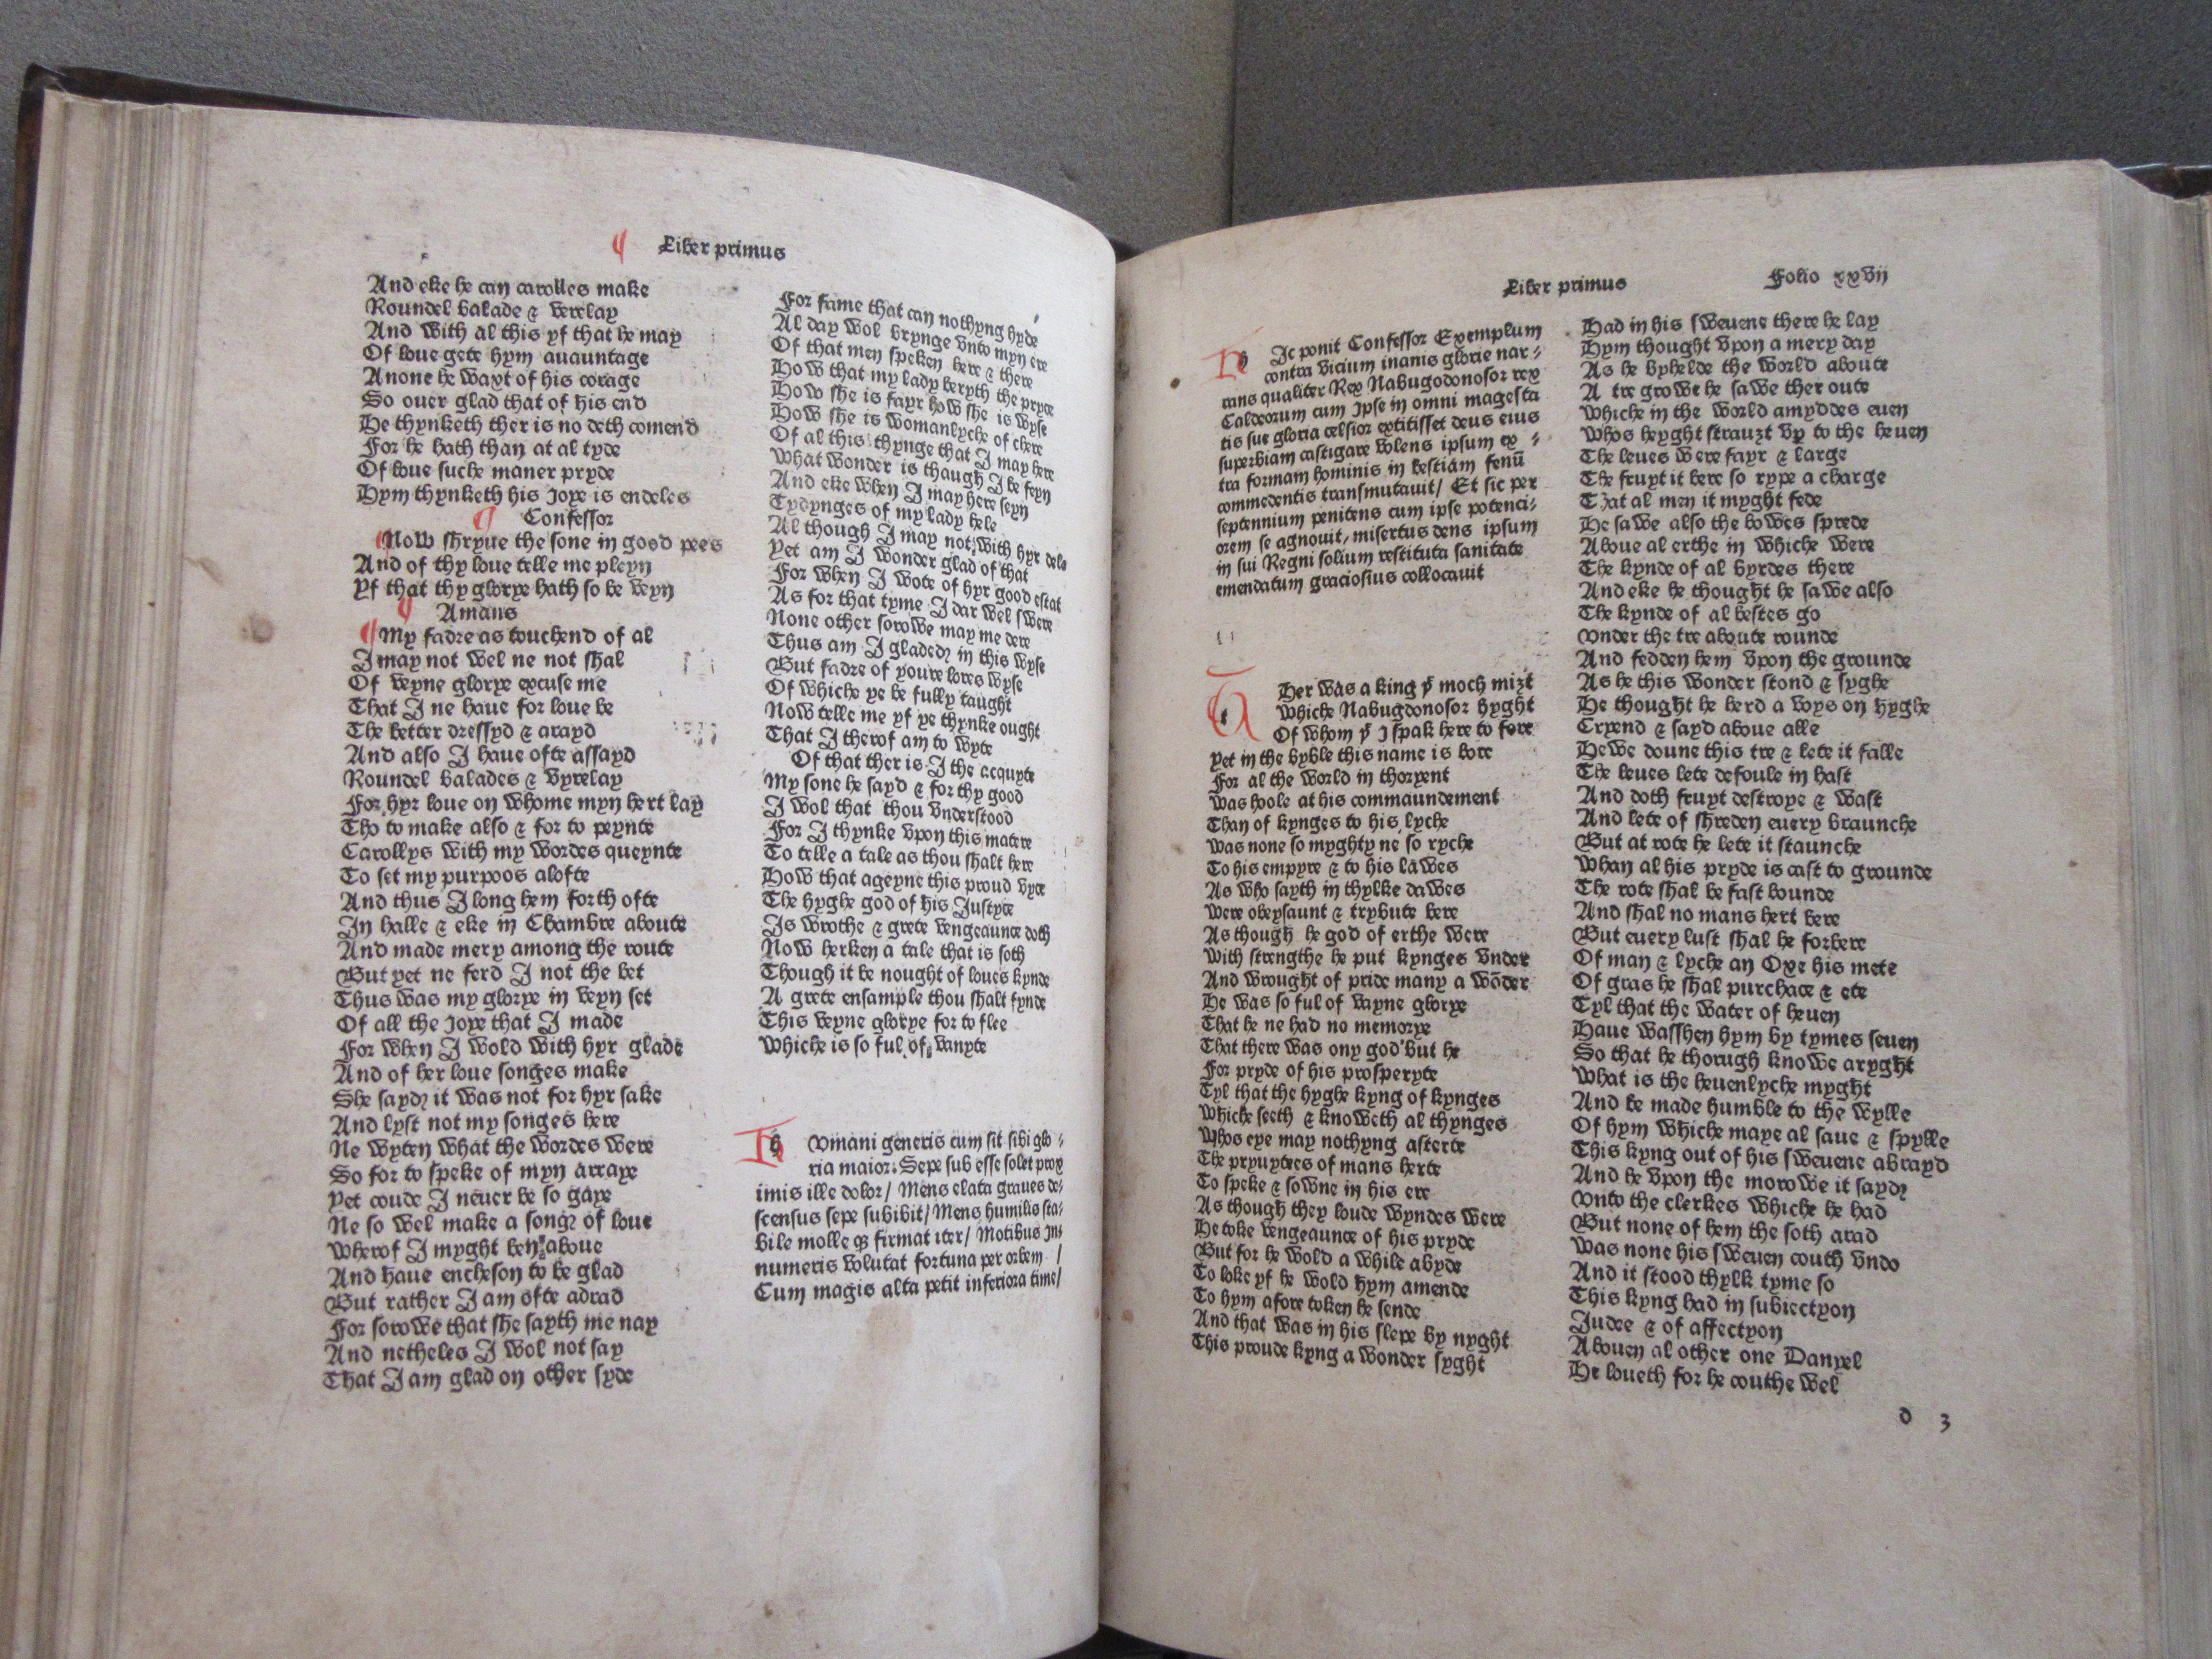 Liber primus
And eke he can carolles make
Roundel balade & verelay
And with al this yf that he may
Of loue gete hym auauntage
Anone he waxt of his corage
So ouer glad that of his end
He thynketh ther is no deth comend
For he hath than at al tyde
Of loue suche maner pryde
Hym thynketh his Joye is endeles
Confessor
Now shryue the sone in good pees
And of thy loue telle me pleyn
Yf that thy glorye hath so be veyn
Amans
My fadre as touchend of al
I may not wel ne not shal
Of veyne glorye excuse me
That I ne haue for loue be
The better dressyd & arayd
And also I haue ofte assayd
Roundel balades & vyrelay
For hyr loue on whome myn hert lay
Tho to make also & for to peynte
Carollys with my wordes queynte
To set my purpoos alofte
And thus I long hem forth ofte
In halle & eke in Chambre aboute
And made mery among the route
But yet ne ferd I not the bet
Thus was my glorye in veyn set
Of all the Joye that I made
For when I wold with hyr glade
And of her loue songes make
She sayd it was not for hyr sake
And lyst not my songes here
Ne wyten what the wordes were
So for to speke of myn arraye
Yet coude I neuer be so gaye
Ne so wel make a song of loue
Wherof I myght ben aboue
And haue encheson to be glad
But rather I am ofte adrad
For sorowe that she sayth me nay
And netheles I wol not say
That I am glad on other syde
For fame that can nothyng hyde
Al day wol brynge vnto myn ere
Of that men speken here & there
How that my lady beryth the pryce
How she is fayr how she is wyse
How she is womanlyche of chere
Of al this thynge that I may here
What wonder is thaugh I be feyn
And eke when I may here seyn
Tydynges of my lady hele
Al though I may not with hyr dele
Yet am I wonder glad of that
For when I wote of hyr good estat
As for that tyme I dar wel swere
None other sorowe may me dere
Thus am I gladed in this wyse
But fadre of youre lores wyse
Of whiche ye be fully taught
Now telle me yf ye thynke ought
That I therof am to wyte
Of that ther is I the acquyte
My sone he sayd & for thy good
I wol that thou vnderstood
For I thynke vpon this matere
To telle a tale as thou shalt here
How that ageyne this proud vyce
The hyghe god of his Justyce
Is wrothe & grete vengeaunce doth
Now herken a tale that is soth
Though it be nought of loues kynde
A grete ensample thou shalt fynde
This veyne glorye for to flee
Whiche is so ful of vanyte
h Vmani generis cum sit sibi glo-
ria maior. Sepe sub esse solet prox
imis ille dolor/ Mens elata graues de-
scensus sepe subibit/ Mens humilis sta-
bile molle qȝ firmat iter/ Motibus in-
numeris volutat fortuna per orbem /
Cum magis alta petit inferiora time/
Liber primus Folio xxvij
h Ic ponit Confessor Exemplum
contra vicium inanis glorie nar-
rans qualiter Rex Nabugodonosor rex
Caldeorum cum ipse in omni magesta
tis sue gloria celsior extitisset deus eius
superbiam castigare volens ipsum ex -
tra formam hominis in bestiam fenū
commedentis transmutauit/ Et sic per
septennium penitens cum ipse potenci-
orem se agnouit, misertus deus ipsum
in sui Regni solium restituta sanitate
emendatum graciosius collocauit
t Her was a king yͭ moch miȝt
Whiche Nabugodonosor hyght
Of whom yͭ I spak here to fore
Yet in the byble this name is bore
For al the world in thoryent
Was hoole at his commaundement
Than of kynges to his lyche
Was none so myghty ne so ryche
To his empyre & to his lawes
As who sayth in thylke dawes
Were obeysaunt & trybute bere
As though he god of erthe were
With strengthe he put kynges vnder
And wrought of pride many a wōder
He was so ful of vayne glorye
That he ne had no memorye
That there was ony god but he
For pryde of his prosperyte
Tyl that the hyghe kyng of kynges
Whiche seeth & knoweth al thynges
Whos eye may nothyng asterte
The pryuytees of mans herte
To speke & sowne in his ere
As though they loude wyndes were
He toke vengeaunce of his pryde
But for he wold a while abyde
To loke yf he wold hym amende
To hym afore token he sende
And that was in his slepe by nyght
This proude kyng a wonder syght
Had in his sweuene there he lay
Hym thought vpon a mery day
As he byhelde the world aboute
A tre growe he sawe ther oute
Whiche in the world amyddes euen
Whos heyght strauȝt vp to the heuen
The leues were fayr & large
The fruyt it bere so rype a charge
That al men it myght fede
He sawe also the bowes sprede
Aboue al erthe in whiche were
The kynde of al byrdes there
And eke he thought he sawe also
The kynde of al bestes go
Vnder the tre aboute rounde
And fedden hem vpon the grounde
As he this wonder stond & syghe
He thought he herd a voys on hyghe
Cryend & sayd aboue alle
Hewe doune this tre & lete it falle
The leues lete defoule in hast
And doth fruyt destroye & wast
And lete of shreden euery braunche
But at rote he lete it staunche
Whan al his pryde is cast to grounde
The rote shal be fast bounde
And shal no mans hert bere
But euery lust shal he forbere
Of man & lyche an Oxe his mete
Of gras he shal purchace & ete
Tyl that the water of heuen
Haue wasshen hym by tymes seuen
So that he thorugh knowe aryght
What is the heuenlyche myght
And be made humble to the wylle
Of hym whiche maye al saue & spylle
This kyng out of his sweuene abrayd
And he vpon the morowe it sayd
Vnto the clerkes whiche he had
But none of hem the soth arad
Was none his sweuen couth vndo
And it stood thylk tyme so
This kyng had in subiectyon
Judee & of affectyon
Abouen al other one Danyel
He loueth for he couthe wel
d 3